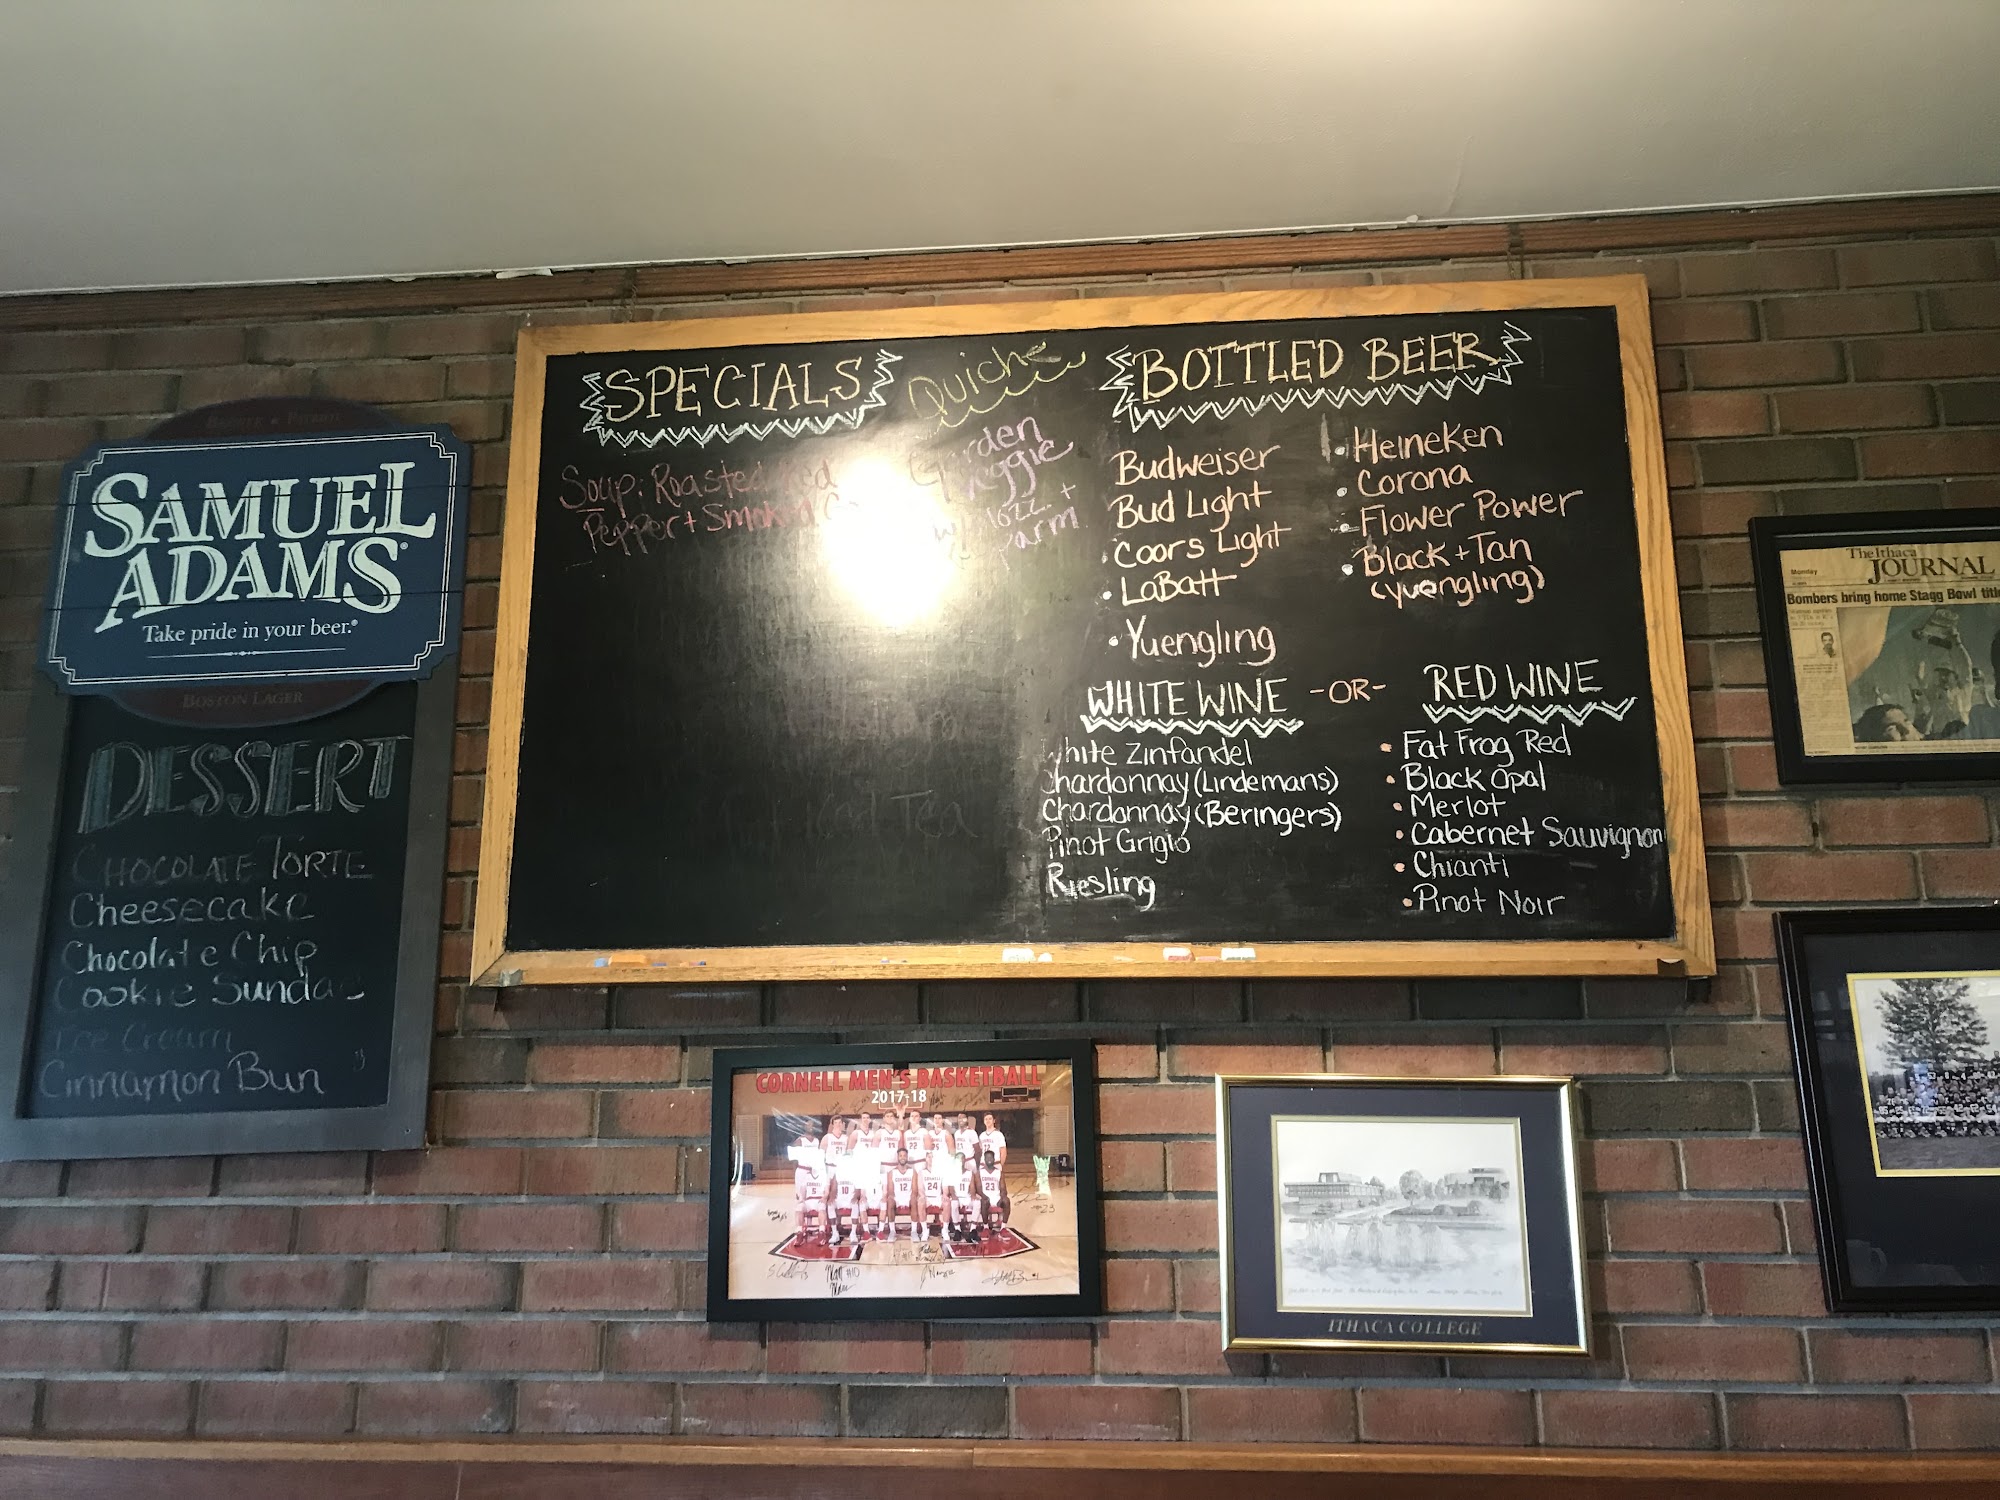 SAMUEL
ADAMS
Take pride in your beer.®
BOSTON LAGER
DESSERT
CHOCOLATE TORTE
Cheesecake
Chocolate Chip
Cookie Sundae
Ice Cream
Cinnamon Bun
SPECIALS
Soup: Roasted
Pepper + Smoked
Quiche
Garden
Veggie
mozz. +
parm
BOTTLED BEER
Budweiser
Bud Light
• Coors Light
• LaBatt
• Yuengling
• Heineken
• Corona
• Flower Power
• Black + Tan
(yuengling)
WHITE WINE -OR- RED WINE
White Zinfandel
Chardonnay (Lindemans)
Chardonnay (Beringers)
Pinot Grigio
Riesling
• Fat Frog Red
• Black Opal
• Merlot
• Cabernet Sauvignon
• Chianti
• Pinot Noir
Tea
The Ithaca
Monday JOURNAL
Bombers bring home Stagg Bowl title
CORNELL MEN'S BASKETBALL
2017-18
ITHACA COLLEGE